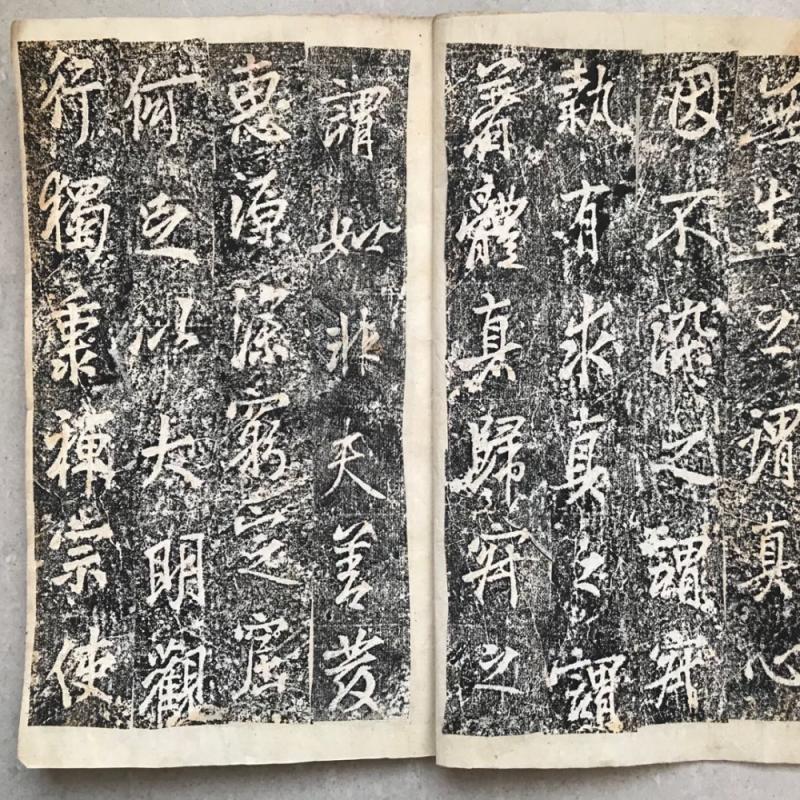 無生之謂真心
因不染之謂寂
執有求真之謂
著體真歸寂之
謂如非夫善發
惠源深窮定窟
何足以大明觀
行獨秉禪宗使